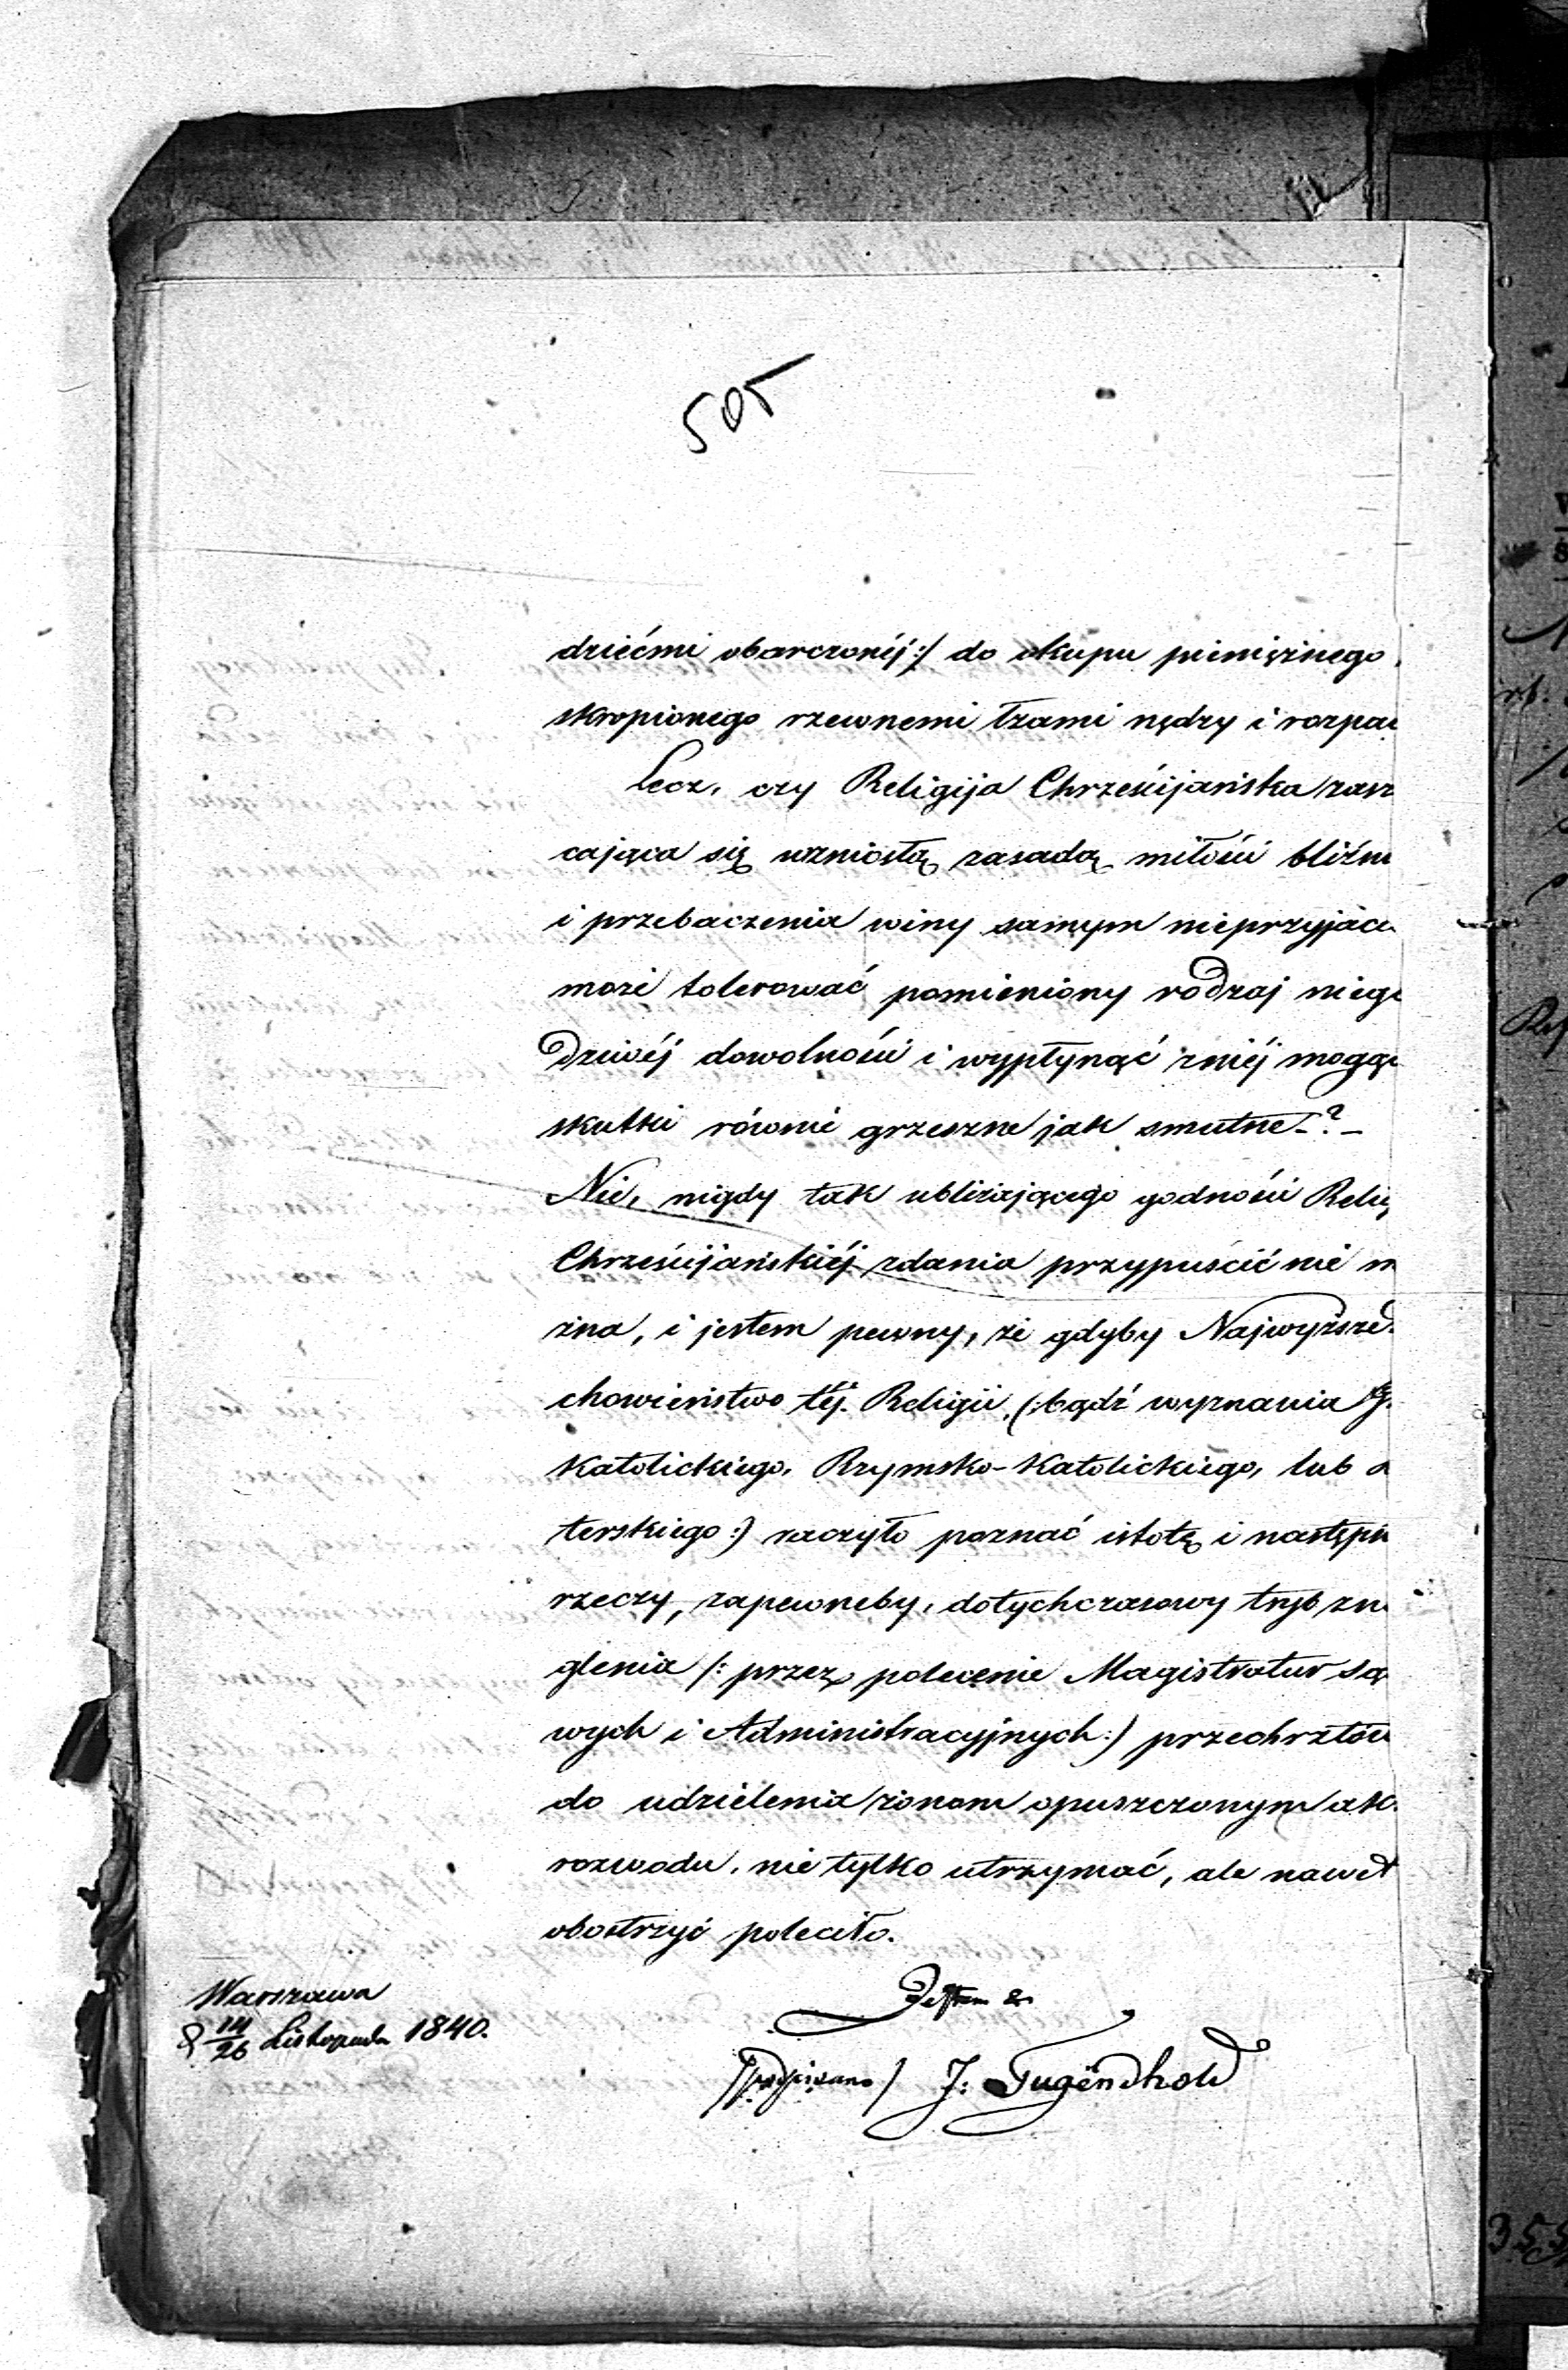 505
dziećmi obarczonéj:/ do okupu pieniężnego
skropionego rzewnemi łzami nędzy i rozpac
Lecz, czy Religija Chrześcijańska zasz
cająca się wzniosłą zasadą miłości bliźn
i przebaczenia winy samym nieprzyjacı
może tolerować pomieniony rodzaj niego
dziwéj dowolności i wypłynąć zniéj mogąc
skutki równie grzeszne jak smutne-?-
Nie, nigdy tak ubliżającego godności Relig
Chrześcijańskiéj zdania przypuścić nie m
żna, i jestem pewny, że gdyby Najwyższe
chowieństwo téj Religii, (:bądź wyznania G.
Katolickiego, Rzymsko-Katolickiego, lub
terskiego:) raczyło poznać istotę i następn
rzeczy, zapewneby, dotychczasowy tryb zn
glenia /: przez polecenie Magistratur są
wych i Administracyjnych:) przechrztów
do udzielenia żonom opuszczonym akt
rozwodu, nie tylko utrzymać, ale nawet
obostrzyć poleciło.
Warszawa
d 14/26 Listopada 1840.
Jestem &
/podpisano/ J: Tugendhold
355